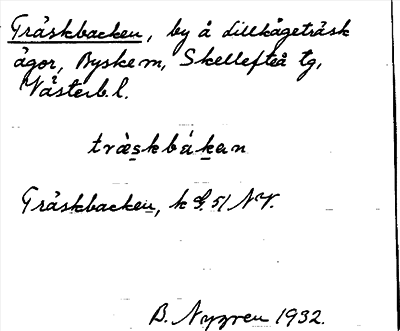 Träskbacken, by å Lillkågeträsk
ägor, Byske sn, Skellefteå tg,
Västerb. l.
träskbákan
Träskbacken, k 51 NV.
B. Nygren 1932.